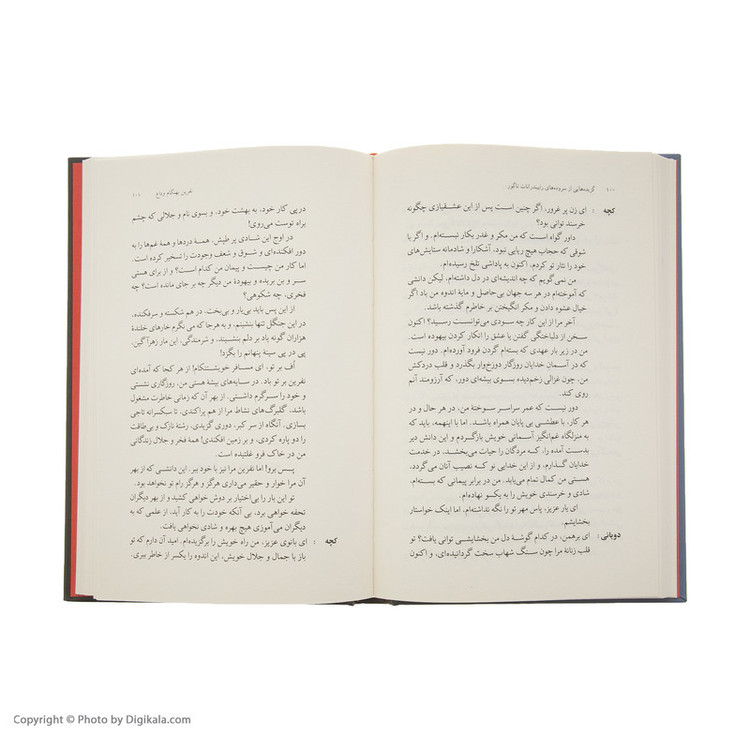 ۱۰۰ گزیده‌هایی از سروده‌های رابیندرانات تاگور
کچه : ای زن پر غرور، اگر چنین است پس از این عشقبازی چگونه
خرسند توانی بود؟
داور گواه است که من مکر و غدر بکار نبسته‌ام. و اگر با
شوقی که حجاب هیچ ریایی نبود، آشکارا و شادمانه ستایش‌های
خود را نثار تو کردم، اکنون به پاداشی تلخ رسیده‌ام.
من نمی‌گویم که چه اندیشه‌ای در دل داشته‌ام. لیکن دانشی
که آموخته‌ام در هر سه جهان بی‌حاصل و مایهٔ اندوه من بود اگر
خیال عشوه دادن و مکر انگیختن بر خاطرم گذشته باشد.
آخر مرا از این کار چه سودی می‌توانست رسید؟ اکنون
سخن از دلباختگی گفتن یا عشق را انکار کردن بیهوده است.
من در زیر بار عهدی که بسته‌ام گردن فرود آورده‌ام. دور نیست
که در آسمانِ خدایان روزگار دوزخ‌وار بگذرد و قلب دردکش
من، چون غزالی زخم‌دیده بسوی بیشه‌ای دور، که آرزومند آنم
روی کند.
دور نیست که عمر سراسر سوختهٔ من، در هر حال و در
هر کار، با عطشی بی پایان همراه باشد. اما با اینهمه، باید که
به منزلگاه غم‌انگیز آسمانی خویش بازگردم و این دانش دیر
بدست آمده را، که مردگان را حیات می‌بخشد، در خدمت
خدایان گذارم. و از این خدایی تو که نصیب آنان می‌گردد.
هستی من کمال تمام می‌یابد. من در برابر پیمانی که بسته‌ام.
شادی و خرسندی خویش را به یکسو نهاده‌ام.
ای یار عزیز، پاس مهر تو را نگه نداشته‌ام، اما اینک خواستار
بخشایشم.
دویانی : ای برهمن، در کدام گوشهٔ دل من بخشایشی توانی یافت؟ تو
قلب زنانهٔ مرا چون سنگ شهاب سخت گردانیده‌ای، و اکنون
آخرین بهنگام وداع ۱۰۱
در پی کار خود، به بهشت خود، و بسوی نام و جلالی که چشم
براه توست می‌روی!
در اوج این شادی پر طپش، همهٔ دردها و همهٔ غم‌ها را به
دور افکنده‌ای و شوق و شعف وجودت را تسخیر کرده است.
اما کار من چیست و پیمان من کدام است؟ و از برای هستی
سر و بن بریده و بیهودهٔ من دیگر چه بر جای مانده است؟ چه
فخری، چه شکوهی؟
از این پس باید بی‌یار و بی‌بخت، در هم شکسته و سرفکنده،
در این جنگل تنها بنشینم، و به هر جا که می نگرم خارهای خلندهٔ
هزاران گناه باید بر دلم بنشیند، و شرمندگی، این مار زهرآگین،
پی در پی سینهٔ پنهانم را بگزد!
اُف بر تو، ای مسافر خویشتنکام! از هر کجا که آمده‌ای
نفرین بر تو باد. در سایه‌های بیشهٔ هستی من، روزگاری نشستی
و خود را سرگرم داشتی، از بهر آن که زمانی خاطرت مشغول
باشد، گلبرگ‌های نشاط مرا از هم پراکندی، تا سبکسرانه تاجی
بسازی. آنگاه از سر کبر، دوری گزیدی، رشتهٔ نازک و بی‌طاقت
را دو پاره کردی، و بر زمین افکندی! همهٔ فخر و جلال زندگانی
من در خاک فرو غلتیده است.
پس برو! اما نفرین مرا نیز با خود ببر. این دانشی که از بهر
آن مرا خوار و حقیر می‌داری هرگز و هرگز رام تو نخواهد بود.
تو این بار را بی‌اختیار بر دوش خواهی کشید و از بهر دیگران
تحفه خواهی برد، بی آنکه خودت را به کار آید. از علمی که به
دیگران می‌آموزی هیچ بهره و شادی نخواهی یافت.
کچه : ای بانوی عزیز، من راه خویش را برگزیده‌ام. امید آن دارم که تو
باز با جمال و جلال خویش، این اندوه را یکسر از خاطر ببری.
Copyright © Photo by Digikala.com